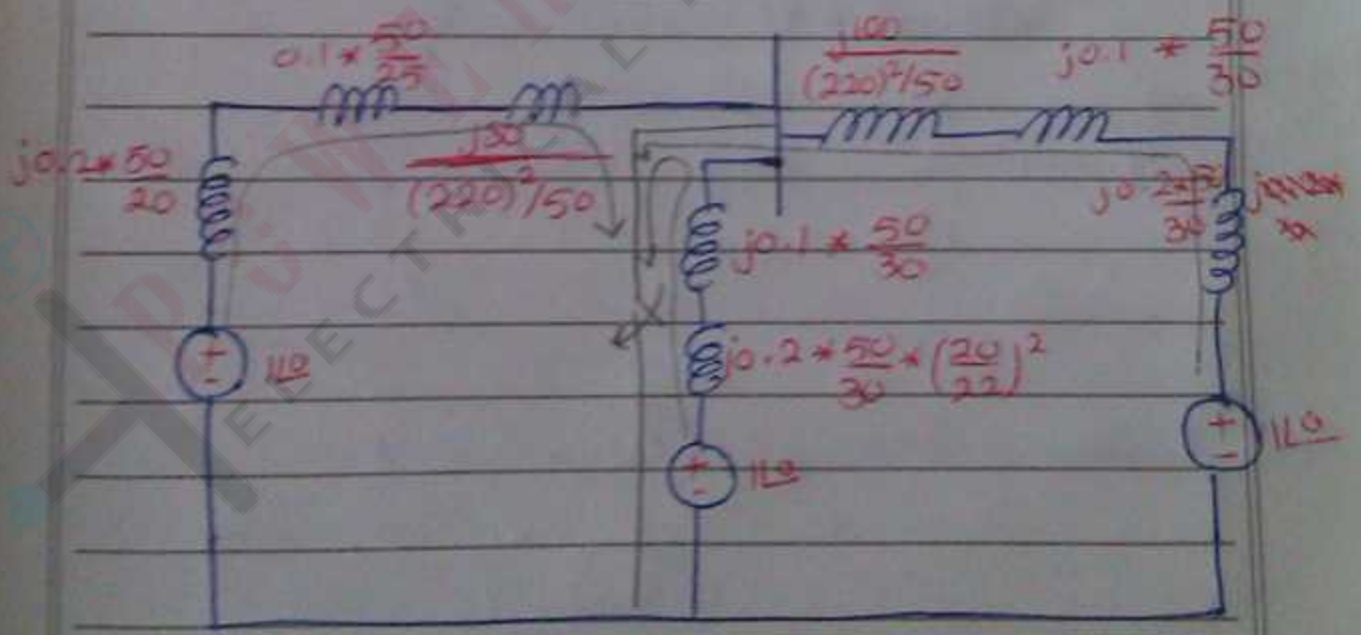 0.1 * 50/25
j100/(220)²/50
j0.1 * 50/30
j0.2 * 50/20
(220)²/50
j0.1 * 50/30
j0.2 * 50/30 * (20/22)²
+
-
1∠0
+
-
1∠0
+
-
1∠0
ELECTRICAL